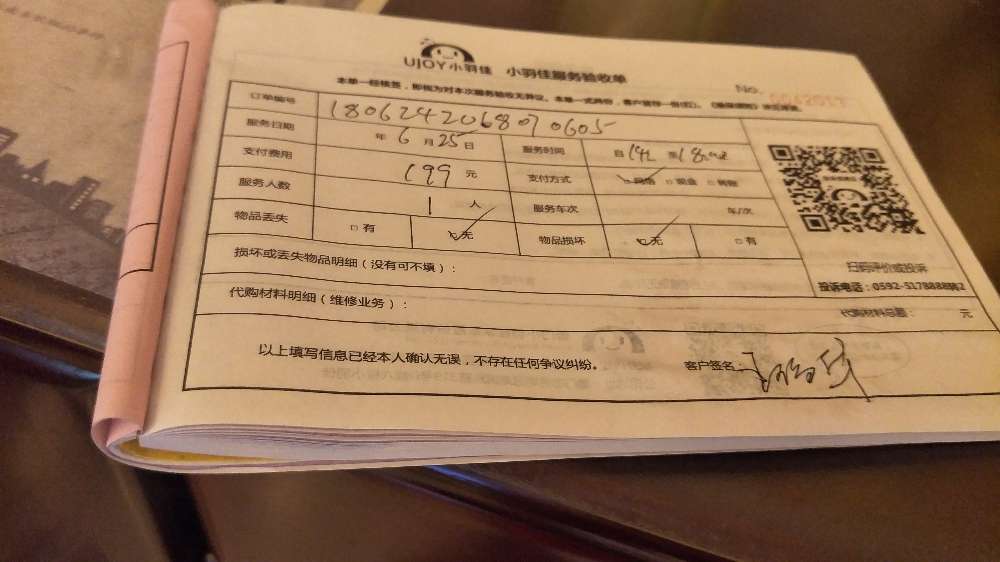 UJOY小羽佳 小羽佳服务验收单
No.
本单一经核签，即视为对本次服务验收无异议。本单一式两份，客户留存一份(红)。
订单编号 1806242068070605
服务日期 年6月25日 服务时间 自14 至18
支付费用 199元 支付方式 网络 现金 转账
服务人数 1人 服务车次 车/次
物品丢失 有 无 物品损坏 无 有
损坏或丢失物品明细（没有可不填）：
扫码评价或投诉
投诉电话：0592-5178888转2
代购材料明细（维修业务）： 代购材料总额： 元
以上填写信息已经本人确认无误，不存在任何争议纠纷。 客户签名：